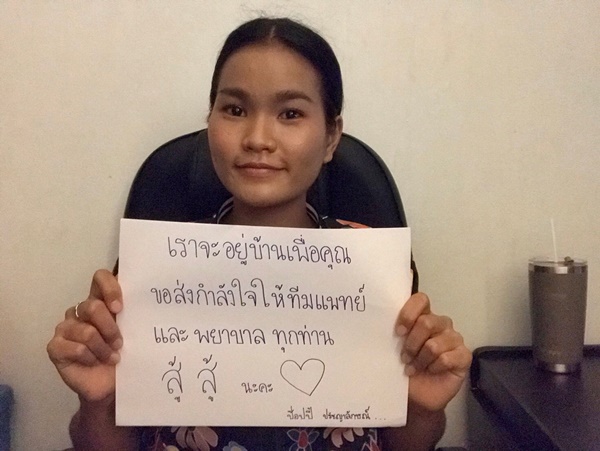 เราจะอยู่บ้านเพื่อคุณ
ขอส่งกำลังใจให้ทีมแพทย์
และ พยาบาล ทุกท่าน
สู้ สู้ นะคะ
ป๊อปปี้